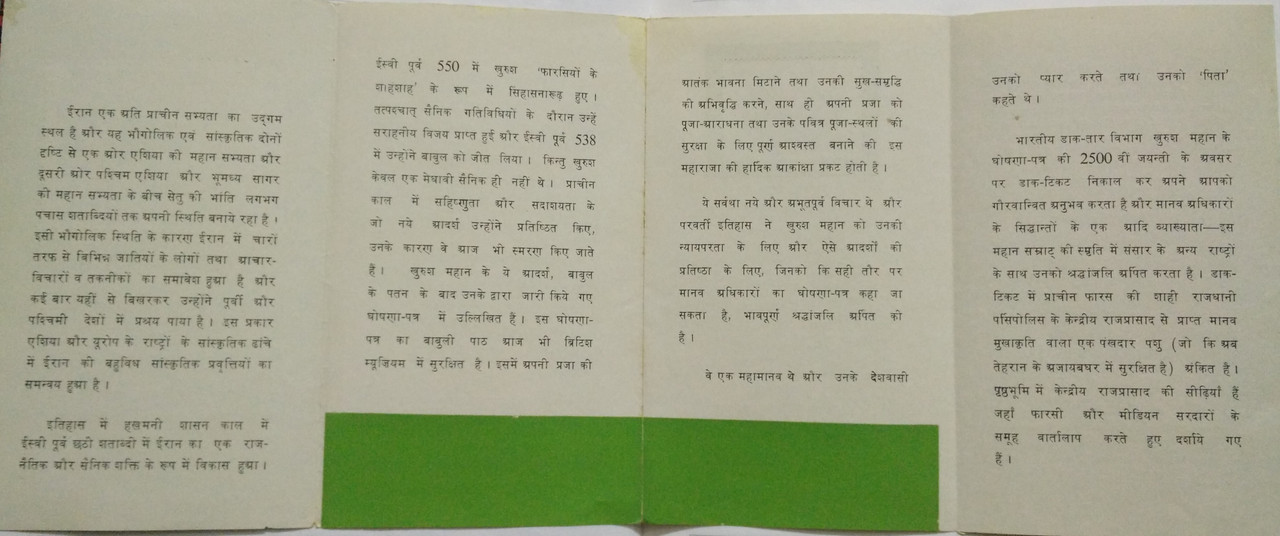 ईरान एक अति प्राचीन सभ्यता का उद्गम
स्थल है और यह भौगोलिक एवं सांस्कृतिक दोनों
दृष्टि से एक ओर एशिया की महान सभ्यता और
दूसरी ओर पश्चिम एशिया और भूमध्य सागर
की महान सभ्यता के बीच सेतु की भांति लगभग
पचास शताब्दियों तक अपनी स्थिति बनाये रहा है ।
इसी भौगोलिक स्थिति के कारण ईरान में चारों
तरफ से विभिन्न जातियों के लोगों तथा आचार-
विचारों व तकनीकों का समावेश हुआ है और
कई बार यहीं से बिखरकर उन्होंने पूर्वी और
पश्चिमी देशों में प्रश्रय पाया है । इस प्रकार
एशिया और यूरोप के राष्ट्रों के सांस्कृतिक ढांचे
में ईरान की बहुविध सांस्कृतिक प्रवृत्तियों का
समन्वय हुआ है ।
इतिहास में हखमनी शासन काल में
ईस्वी पूर्व छठी शताब्दी में ईरान का एक राज-
नैतिक और सैनिक शक्ति के रूप में विकास हुआ ।
ईस्वी पूर्व 550 में खुरुश 'फारसियों के
शाहंशाह' के रूप में सिंहासनारूढ़ हुए ।
तत्पश्चात् सैनिक गतिविधियों के दौरान उन्हें
सराहनीय विजय प्राप्त हुई और ईस्वी पूर्व 538
में उन्होंने बाबुल को जीत लिया । किन्तु खुरुश
केवल एक मेधावी सैनिक ही नहीं थे । प्राचीन
काल में सहिष्णुता और सदाशयता के
जो नये आदर्श उन्होंने प्रतिष्ठित किए,
उनके कारण वे आज भी स्मरण किए जाते
हैं । खुरुश महान के ये आदर्श, बाबुल
के पतन के बाद उनके द्वारा जारी किये गए
घोषणा-पत्र में उल्लिखित हैं । इस घोषणा-
पत्र का बाबुली पाठ आज भी ब्रिटिश
म्यूज़ियम में सुरक्षित है । इसमें अपनी प्रजा की
आतंक भावना मिटाने तथा उनकी सुख-समृद्धि
की अभिवृद्धि करने, साथ ही अपनी प्रजा को
पूजा-आराधना तथा उनके पवित्र पूजा-स्थलों की
सुरक्षा के लिए पूर्ण आश्वस्त बनाने की इस
महाराजा की हार्दिक आकांक्षा प्रकट होती है ।
ये सर्वथा नये और अभूतपूर्व विचार थे और
परवर्ती इतिहास ने खुरुश महान को उनकी
न्यायपरता के लिए और ऐसे आदर्शों की
प्रतिष्ठा के लिए, जिनको कि सही तौर पर
मानव अधिकारों का घोषणा-पत्र कहा जा
सकता है, भावपूर्ण श्रद्धांजलि अर्पित की
है ।
वे एक महामानव थे और उनके देशवासी
उनको प्यार करते तथा उनको 'पिता'
कहते थे ।
भारतीय डाक-तार विभाग खुरुश महान के
घोषणा-पत्र की 2500 वीं जयन्ती के अवसर
पर डाक-टिकट निकाल कर अपने आपको
गौरवान्वित अनुभव करता है और मानव अधिकारों
के सिद्धान्तों के एक आदि व्याख्याता—इस
महान सम्राट् की स्मृति में संसार के अन्य राष्ट्रों
के साथ उनको श्रद्धांजलि अर्पित करता है । डाक-
टिकट में प्राचीन फारस की शाही राजधानी
पर्सिपोलिस के केन्द्रीय राजप्रासाद से प्राप्त मानव
मुखाकृति वाला एक पंखदार पशु (जो कि अब
तेहरान के अजायबघर में सुरक्षित है) अंकित है ।
पृष्ठभूमि में केन्द्रीय राजप्रासाद की सीढ़ियाँ हैं
जहाँ फारसी और मीडियन सरदारों के
समूह वार्तालाप करते हुए दर्शाये गए
हैं ।